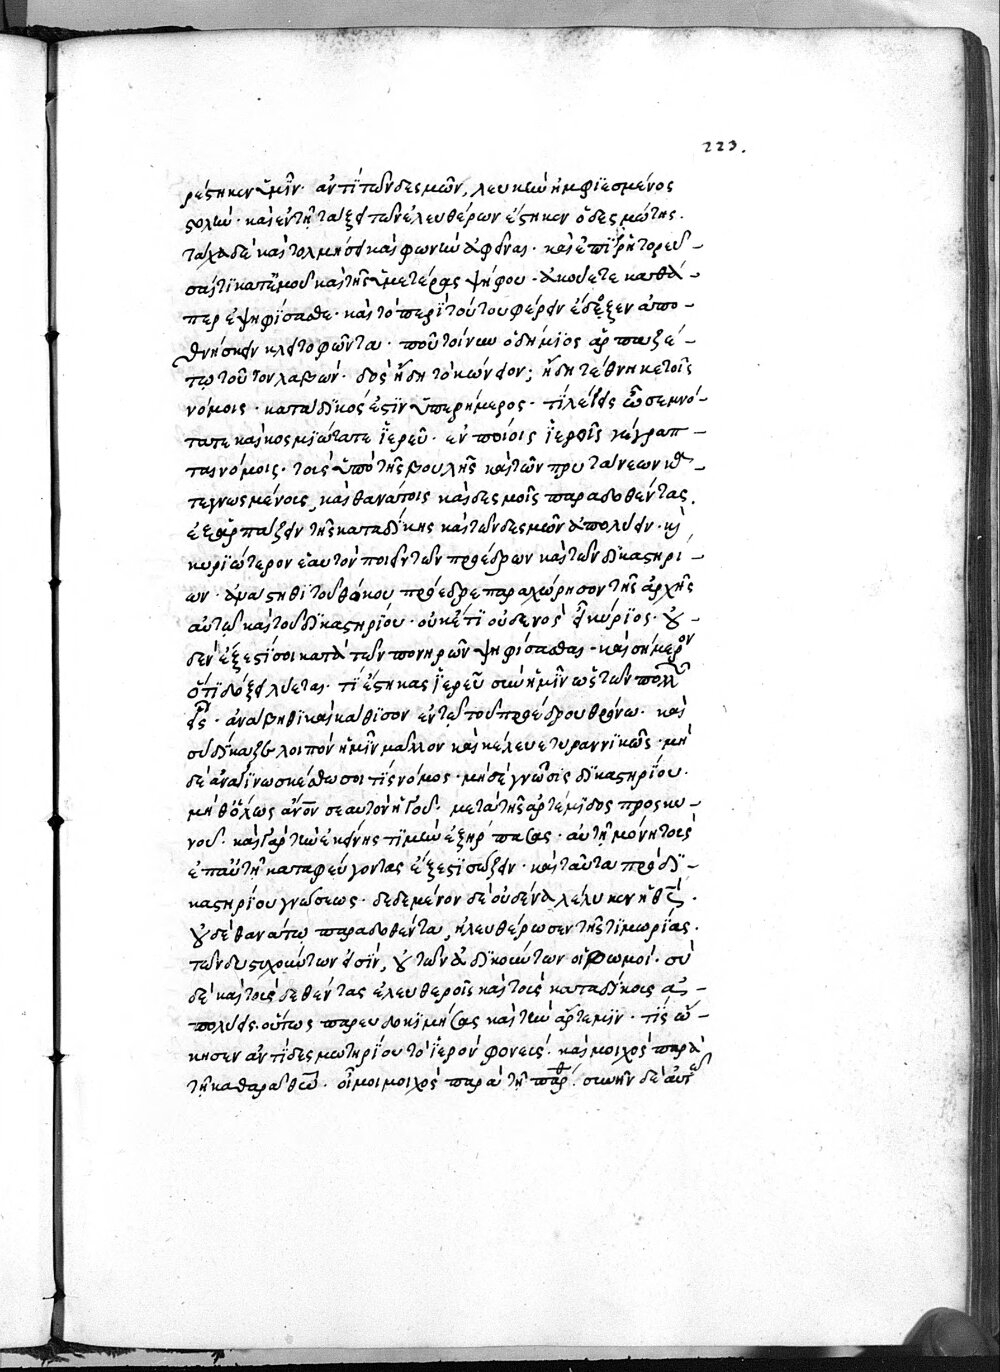 223.
ρέστηκεν ὑμῖν. ἀντὶ τῶν δεσμῶν, λευκὴν ἠμφιεσμένος
στολήν. καὶ ἐν τῇ τάξει τῶν ἐλευθέρων ἕστηκεν ὁ δεσμώτης.
τάχα δὲ καὶ τολμήσει καὶ φωνὴν ἀφεῖναι. καὶ ἐπιρητορεῦ-
σαί τι κατ' ἐμοῦ καὶ τῆς ὑμετέρας ψήφου. ἀκούετε καθά-
περ ἐψηφίσασθε. καὶ τὸ περὶ τούτου φέρειν ἔδοξεν ἀπο-
θνήσκειν κλειτοφῶντα. ποῦ τοίνυν ὁ δήμιος ἁρπαξέ-
τω τοῦτον λαβών. δὸς ἤδη τὸ κώνειον; ἤδη τέθνηκε τοῖς
νόμοις. κατάδικός ἐστιν ὑπερήμερος. τί λέγεις ὦ σεμνό-
τατε καὶ κοσμιώτατε ἱερεῦ. ἐν ποίοις ἱεροῖς γέγραπ-
ται νόμοις. τοὺς ὑπὸ τῆς βουλῆς καὶ τῶν πρυτάνεων κα-
τεγνωσμένους, καὶ θανάτοις καὶ δεσμοῖς παραδοθέντας.
ἐξαρπάζειν τῆς καταδίκης καὶ τῶν δεσμῶν ἀπολύειν. καὶ
κυριώτερον ἑαυτὸν ποιεῖν τῶν προέδρων καὶ τῶν δικαστηρί-
ων. ἀνάστηθι τοῦ θάκου πρόεδρε παραχώρησον τῆς ἀρχῆς
αὐτῷ καὶ τοῦ δικαστηρίου. οὐκέτι οὐδενὸς εἶ κύριος. οὐ-
δὲν ἔξεστί σοι κατὰ τῶν πονηρῶν ψηφίσασθαι. καὶ σήμερον
ὅ τι δόξει λύεται. τί ἕστηκας ἱερεῦ σὺν ἡμῖν ὡς τῶν πολλῶν
εἷς. ἀνάβηθι καὶ κάθισον ἐν τῷ τοῦ προέδρου θρόνῳ. καὶ
σὺ δίκαζε λοιπὸν ἡμῖν μᾶλλον καὶ κέλευε τυραννικῶς. μὴ
δὲ ἀναγινωσκέσθω σοί τις νόμος. μὴ δὲ γνῶσις δικαστηρίου.
μὴ θ' ὅλως ἄνον σεαυτὸν ἡγοῦ. μετὰ τῆς ἀρτέμιδος προσκυ-
νοῦ. καὶ γὰρ τὴν ἐκείνης τιμὴν ἐξήρπασας. αὐτῇ μόνῃ τοὺς
ἐπ' αὐτὴν καταφεύγοντας ἔξεστι σώζειν. καὶ ταῦτα πρὸ δι-
καστηρίου γνώσεως. δεδεμένον δὲ οὐδένα λέλυκεν ἡ θεός.
οὐδὲ θανάτῳ παραδοθέντα, ἠλευθέρωσεν τῆς τιμωρίας.
τῶν δυστυχούντων εἰσὶν, οὐ τῶν ἀδικούντων οἱ βωμοί. σὺ
δὲ καὶ τοὺς δεθέντας ἐλευθεροῖς καὶ τοὺς καταδίκους ἀ-
πολύεις. οὕτως παρευδοκίμησας καὶ τὴν ἄρτεμιν. τίς ᾤ-
κησεν ἀντὶ δεσμωτηρίου τὸ ἱερόν φονεὺς. καὶ μοιχὸς παρὰ
τῇ καθαρᾷ θεῷ. οἴμοι μοιχὸς παρὰ τῇ παρθ. συνῆν δὲ αὐτῷ